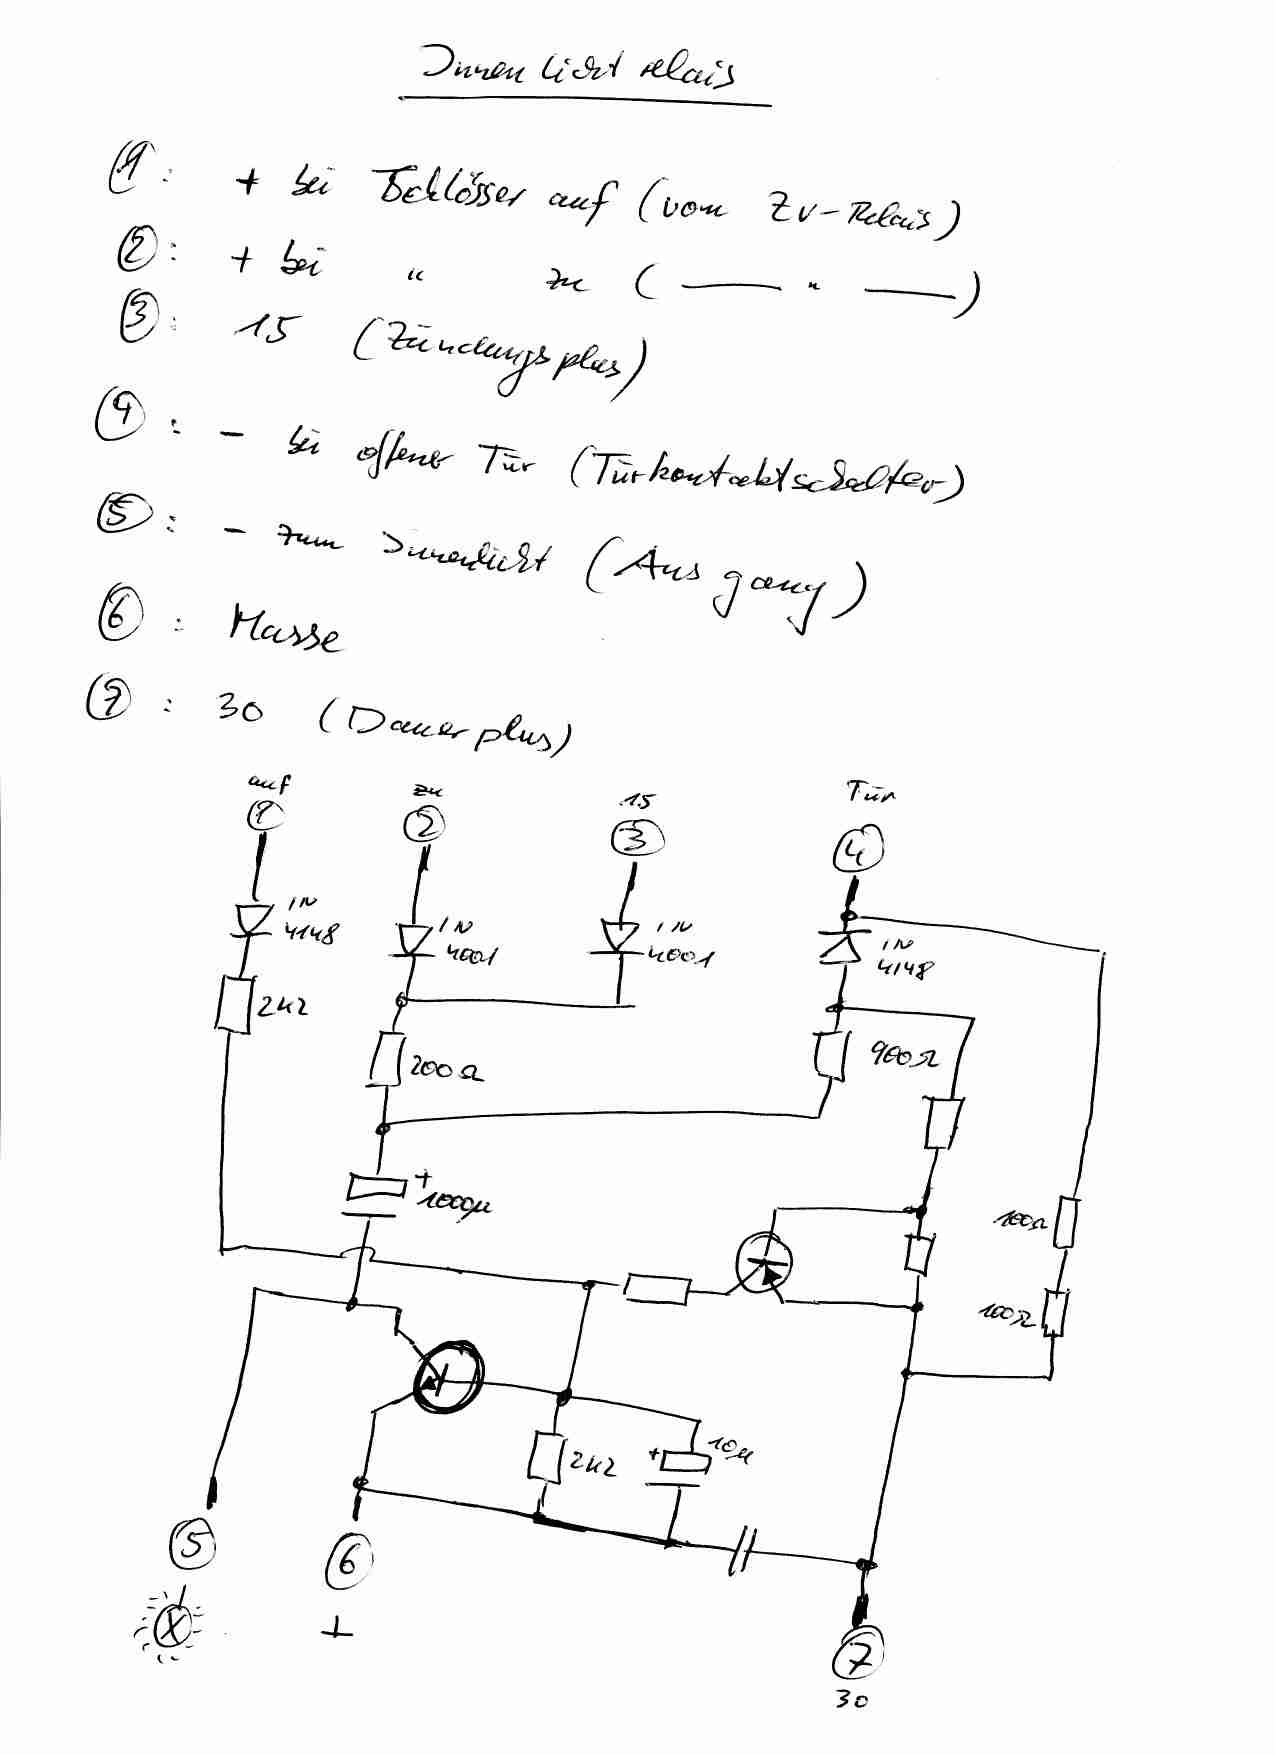 Innenlichtrelais
1: + bei Schlösser auf (vom ZV-Relais)
2: + bei " zu ( —— " —— )
3: 15 (Zündungsplus)
4: - bei offener Tür (Türkontaktschalter)
5: - zum Innenlicht (Ausgang)
6: Masse
7: 30 (Dauerplus)
auf zu 15 Tür
1 2 3 4
1N 4148
1N 4001
1N 4001
1N 4148
2k2
200Ω
900Ω
+ 1000µ
100Ω
100Ω
2k2
+ 10µ
5 6 7
30